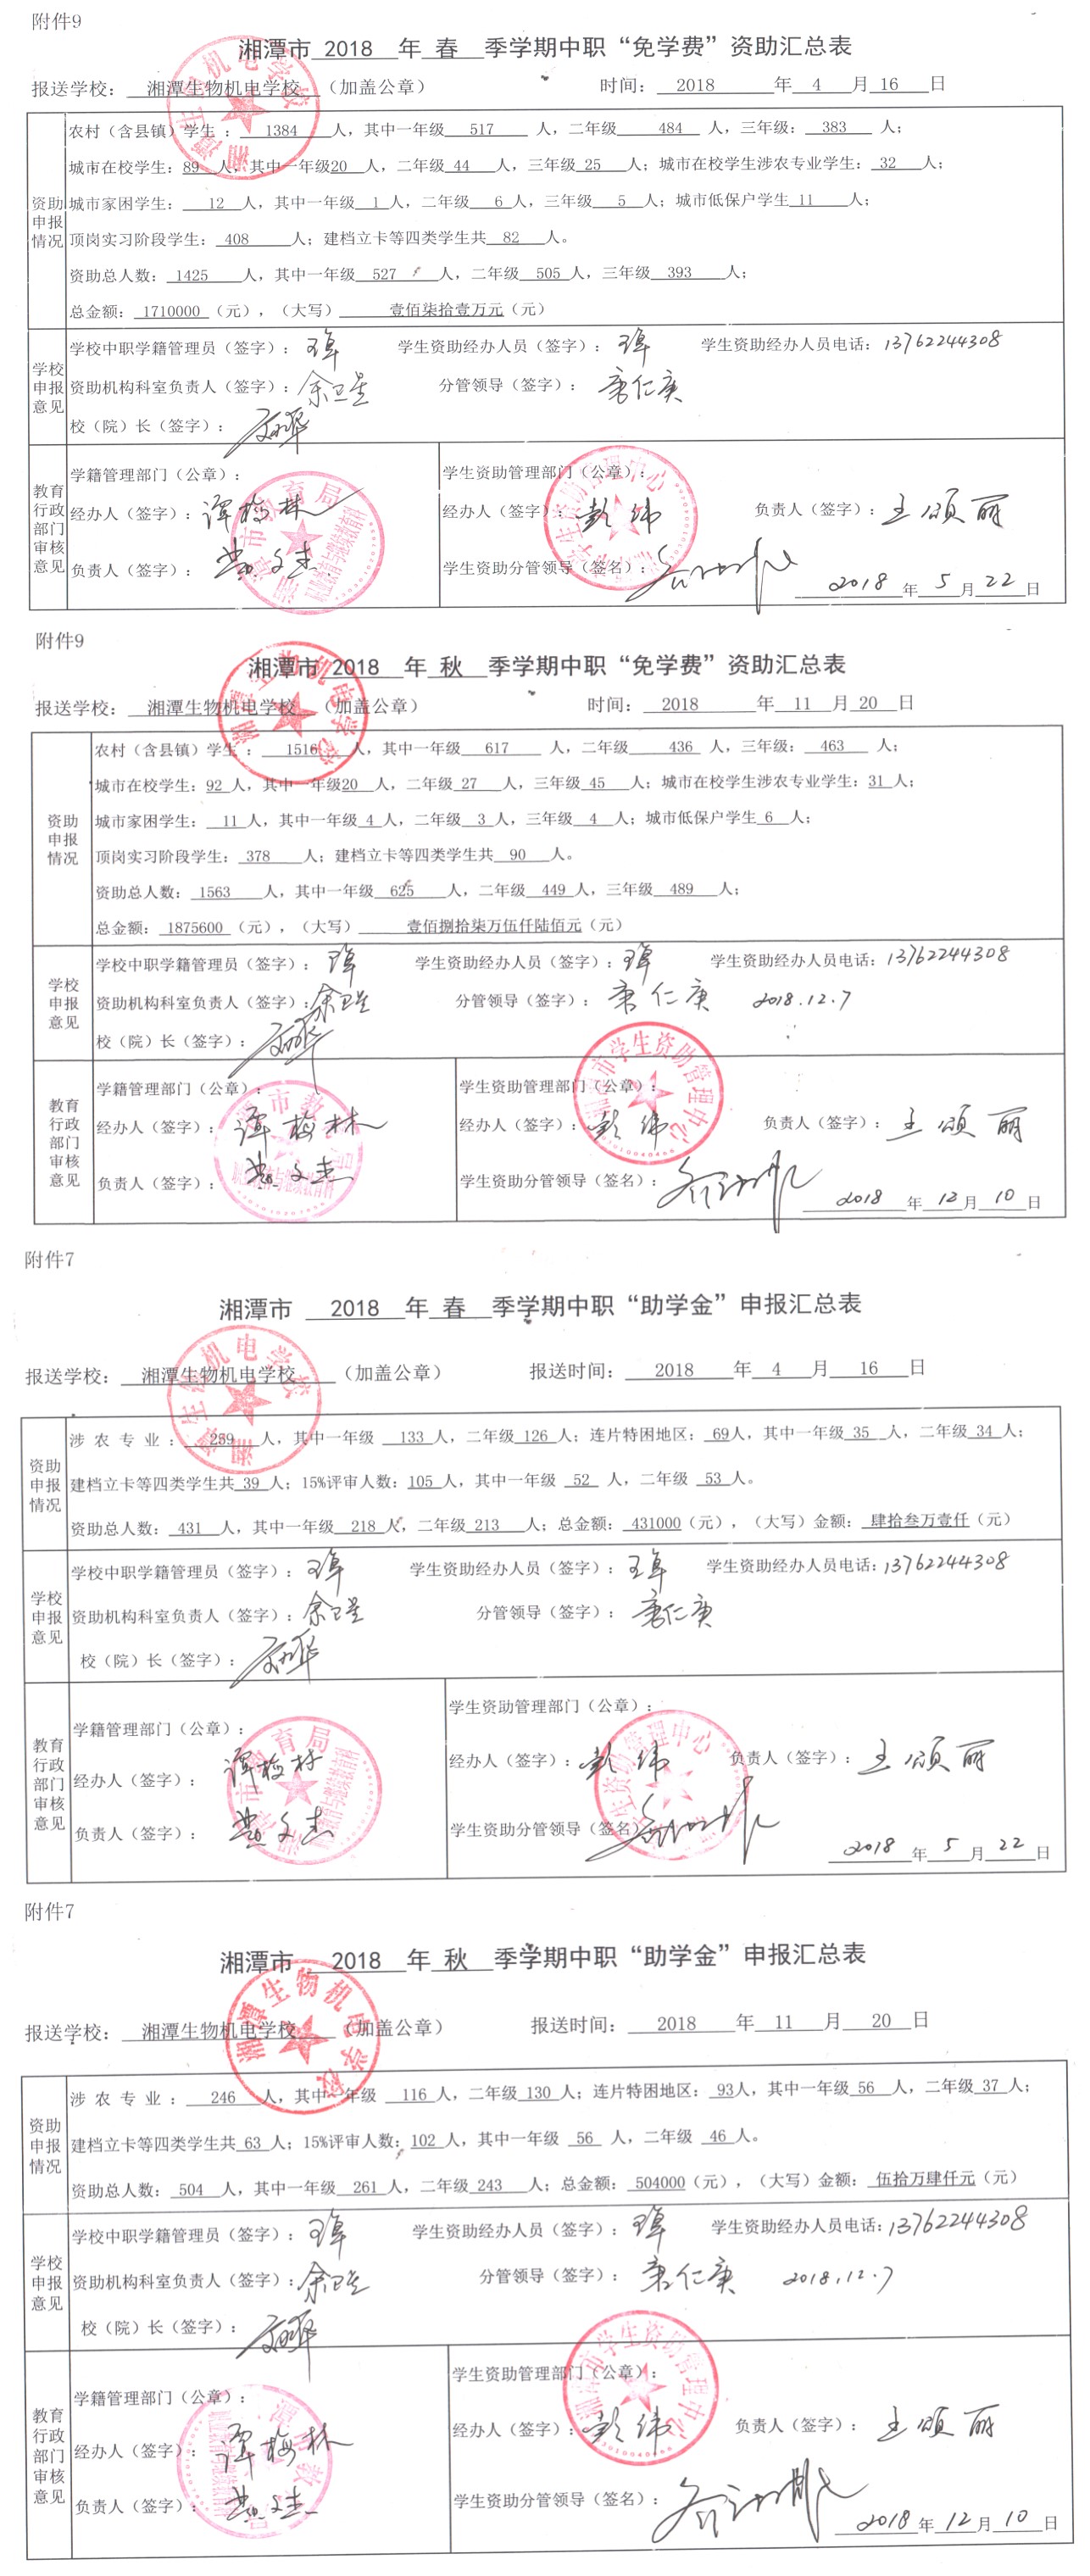 附件9
湘潭市 2018 年 春 季学期中职“免学费”资助汇总表
报送学校： 湘潭生物机电学校 （加盖公章） 时间： 2018 年 4 月 16 日
资助申报情况
农村（含县镇）学生： 1384 人，其中一年级 517 人，二年级 484 人，三年级： 383 人；
城市在校学生：89 人，其中一年级20 人，二年级 44 人，三年级 25 人；城市在校学生涉农专业学生： 32 人；
城市家困学生： 12 人，其中一年级 1 人，二年级 6 人，三年级 5 人；城市低保户学生 11 人；
顶岗实习阶段学生： 408 人；建档立卡等四类学生共 82 人。
资助总人数： 1425 人，其中一年级 527 人，二年级 505 人，三年级 393 人；
总金额： 1710000 （元），（大写） 壹佰柒拾壹万元（元）
学校申报意见
学校中职学籍管理员（签字）： 学生资助经办人员（签字）： 学生资助经办人员电话：13762244308
资助机构科室负责人（签字）：余卫星 分管领导（签字）： 唐仁庚
校（院）长（签字）：
教育行政部门审核意见
学籍管理部门（公章）： 学生资助管理部门（公章）：
经办人（签字）： 谭梅林 经办人（签字）： 彭伟 负责人（签字）： 王颂丽
负责人（签字）： 学生资助分管领导（签名）： 2018 年 5 月 22 日
附件9
湘潭市 2018 年 秋 季学期中职“免学费”资助汇总表
报送学校： 湘潭生物机电学校 （加盖公章） 时间： 2018 年 11 月 20 日
资助申报情况
农村（含县镇）学生： 1516 人，其中一年级 617 人，二年级 436 人，三年级： 463 人；
城市在校学生：92 人，其中一年级20 人，二年级 27 人，三年级 45 人；城市在校学生涉农专业学生：31 人；
城市家困学生： 11 人，其中一年级 4 人，二年级 3 人，三年级 4 人；城市低保户学生 6 人；
顶岗实习阶段学生： 378 人；建档立卡等四类学生共 90 人。
资助总人数： 1563 人，其中一年级 625 人，二年级 449 人，三年级 489 人；
总金额： 1875600 （元），（大写） 壹佰捌拾柒万伍仟陆佰元（元）
学校申报意见
学校中职学籍管理员（签字）： 学生资助经办人员（签字）： 学生资助经办人员电话：13762244308
资助机构科室负责人（签字）：余卫星 分管领导（签字）： 唐仁庚 2018.12.7
校（院）长（签字）：
教育行政部门审核意见
学籍管理部门（公章）： 学生资助管理部门（公章）：
经办人（签字）： 谭梅林 经办人（签字）： 彭伟 负责人（签字）： 王颂丽
负责人（签字）： 学生资助分管领导（签名）： 2018 年 12 月 10 日
附件7
湘潭市 2018 年 春 季学期中职“助学金”申报汇总表
报送学校： 湘潭生物机电学校 （加盖公章） 报送时间： 2018 年 4 月 16 日
资助申报情况
涉农专业： 259 人，其中一年级 133 人，二年级 126 人；连片特困地区： 69人，其中一年级 35 人，二年级 34 人；
建档立卡等四类学生共 39 人；15%评审人数：105 人，其中一年级 52 人，二年级 53 人。
资助总人数： 431 人，其中一年级 218 人，二年级 213 人；总金额： 431000（元），（大写）金额： 肆拾叁万壹仟（元）
学校申报意见
学校中职学籍管理员（签字）： 学生资助经办人员（签字）： 学生资助经办人员电话：13762244308
资助机构科室负责人（签字）：余卫星 分管领导（签字）： 唐仁庚
校（院）长（签字）：
教育行政部门审核意见
学籍管理部门（公章）： 学生资助管理部门（公章）：
经办人（签字）： 谭梅林 经办人（签字）： 彭伟 负责人（签字）： 王颂丽
负责人（签字）： 学生资助分管领导（签名） 2018 年 5 月 22 日
附件7
湘潭市 2018 年 秋 季学期中职“助学金”申报汇总表
报送学校： 湘潭生物机电学校 （加盖公章） 报送时间： 2018 年 11 月 20 日
资助申报情况
涉农专业： 246 人，其中一年级 116 人，二年级 130 人；连片特困地区： 93人，其中一年级 56 人，二年级 37 人；
建档立卡等四类学生共 63 人；15%评审人数：102 人，其中一年级 56 人，二年级 46 人。
资助总人数： 504 人，其中一年级 261 人，二年级 243 人；总金额： 504000（元），（大写）金额： 伍拾万肆仟元（元）
学校申报意见
学校中职学籍管理员（签字）： 学生资助经办人员（签字）： 学生资助经办人员电话：13762244308
资助机构科室负责人（签字）：余卫星 分管领导（签字）： 唐仁庚 2018.12.7
校（院）长（签字）：
教育行政部门审核意见
学籍管理部门（公章）： 学生资助管理部门（公章）：
经办人（签字）： 谭梅林 经办人（签字）： 彭伟 负责人（签字）： 王颂丽
负责人（签字）： 学生资助分管领导（签名）： 2018 年 12 月 10 日